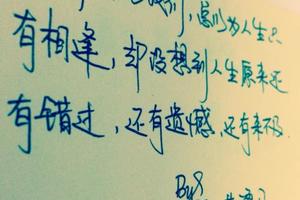 别，总以为人生只
有相逢，却没想到人生原来还
有错过，还有遗憾，还有来不及.
By